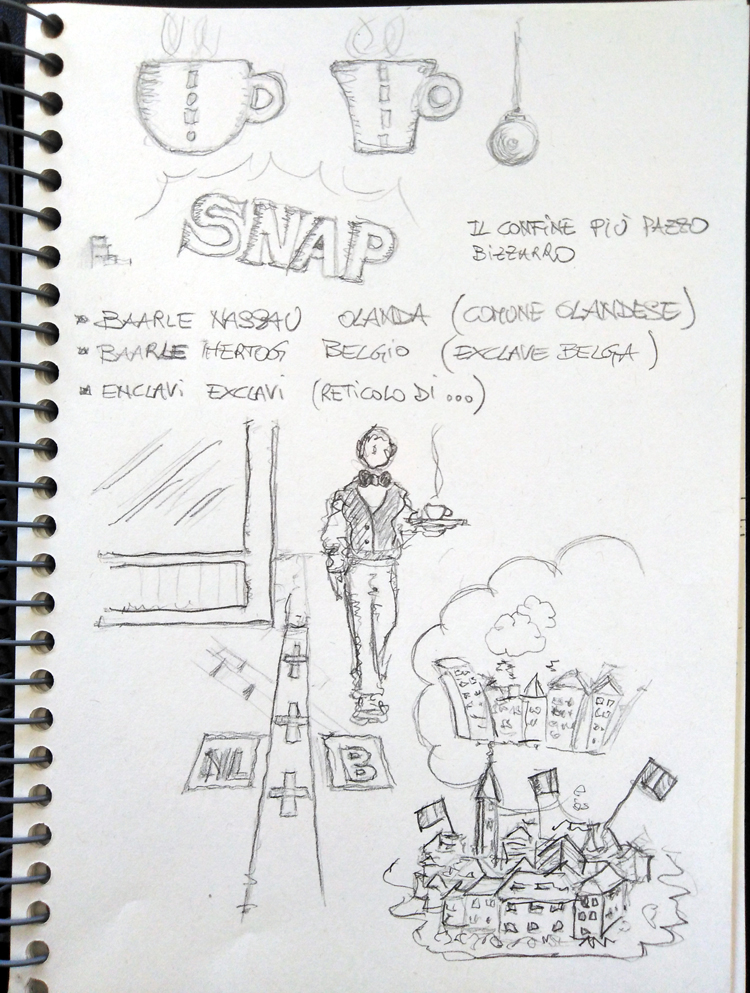 SNAP
IL CONFINE PIÙ PAZZO
BIZZARRO
BAARLE NASSAU OLANDA (COMUNE OLANDESE)
BAARLE HERTOG BELGIO (EXCLAVE BELGA)
ENCLAVI EXCLAVI (RETICOLO DI ...)
NL B